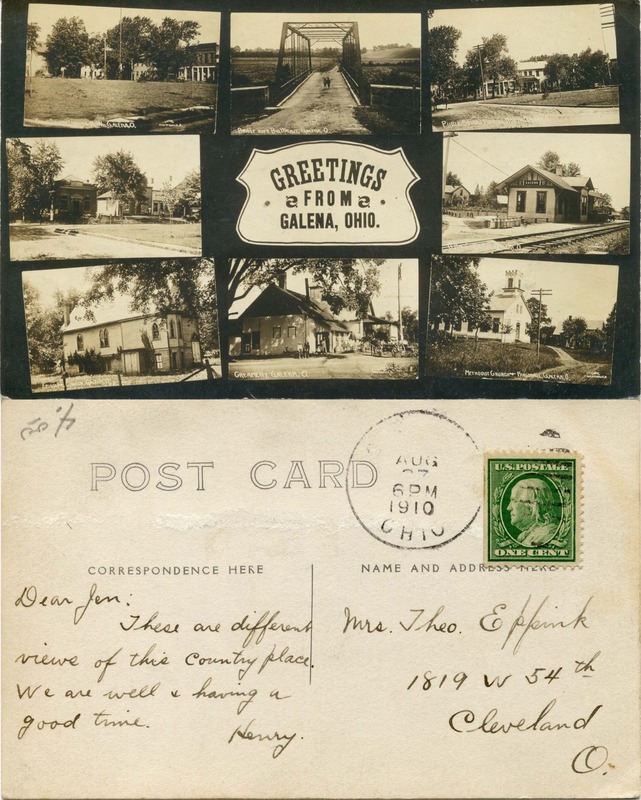 GALENA, O.
BRIDGE AND BIG WALNUT, GALENA, O.
GREETINGS
FROM
GALENA, OHIO.
CREAMERY GALENA, O.
METHODIST CHURCH & PARSONAGE, GALENA, O.
4.50
POST CARD
AUG
27
6 PM
1910
OHIO
U.S. POSTAGE
ONE CENT
CORRESPONDENCE HERE
NAME AND ADDRESS HERE
Dear Jen:
These are different
views of this Country place.
We are well & having a
good time.
Henry.
Mrs. Theo. Eppink
1819 W 54th
Cleveland
O.